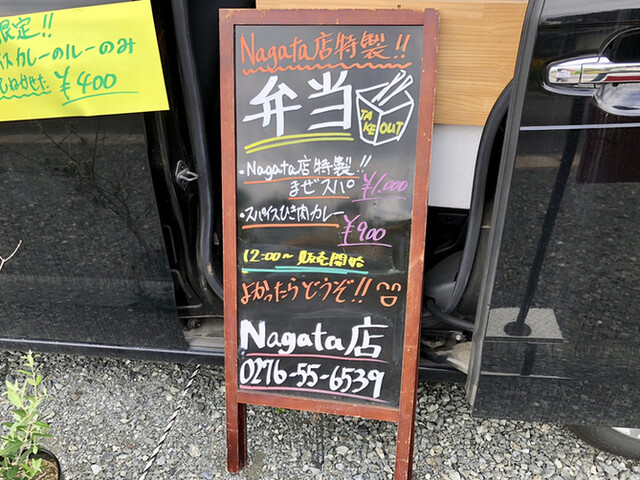 限定!!
イスカレーのルーのみ
¥400
Nagata店特製!!
弁当
TAKE OUT
・Nagata店特製!!
まぜスパ ¥1,000
・スパイスひき肉カレー
¥900
12:00〜 販売開始
よかったらどうぞ!!
Nagata店
0276-55-6539